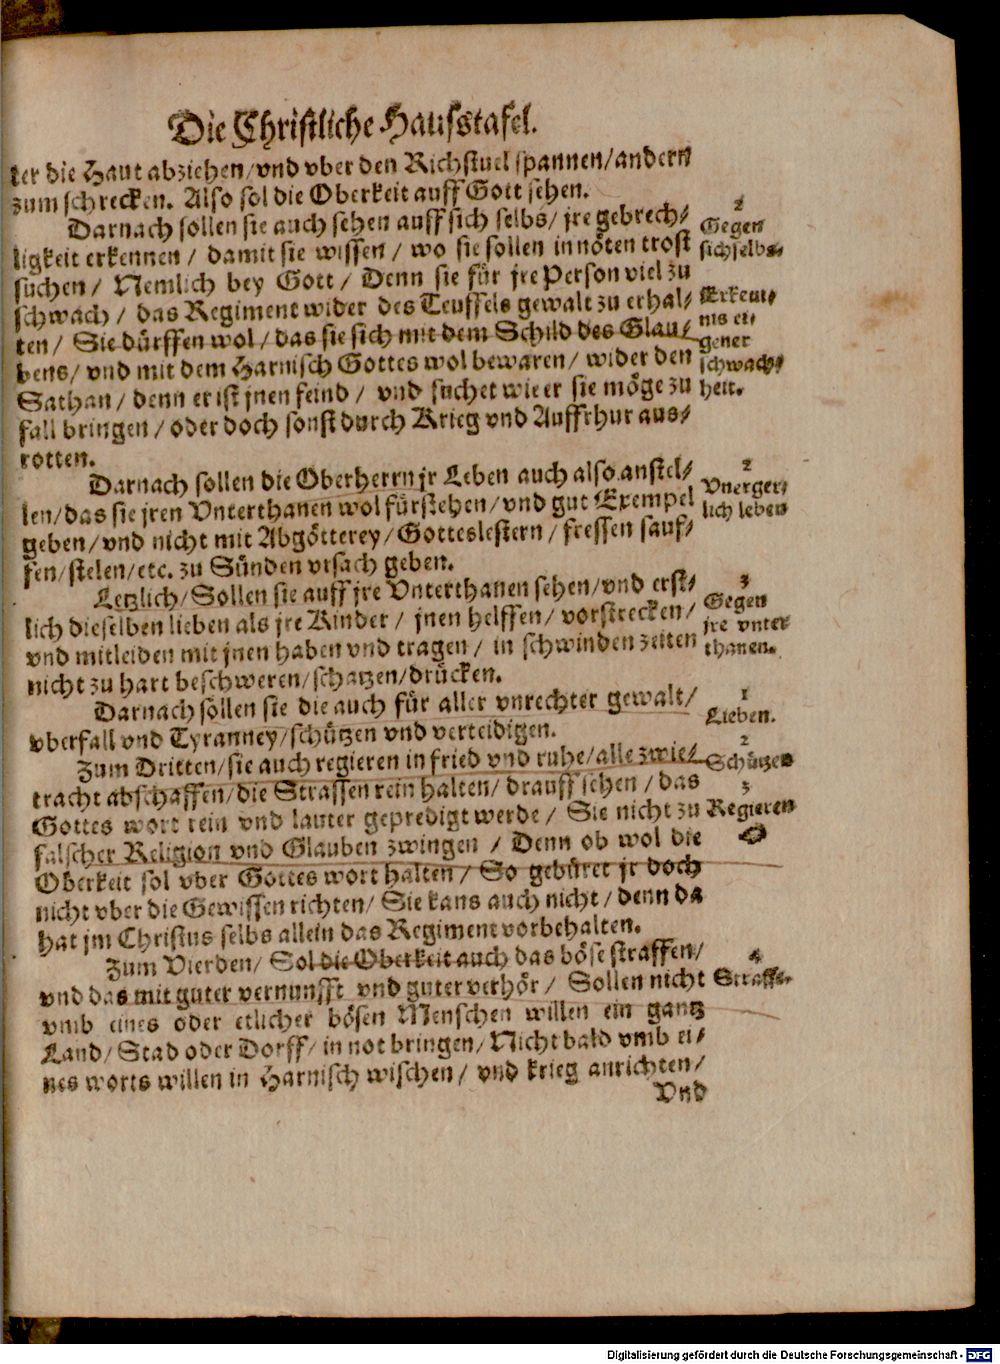 Die Christliche Hausstafel.
ter die Haut abziehen/vnd vber den Richstuel spannen/andern
zum schrecken. Also sol die Oberkeit auff Gott sehen.
Darnach sollen sie auch sehen auff sich selbs/ jre gebrech/
ligkeit erkennen / damit sie wissen / wo sie sollen in nöten trost
suchen / Nemlich bey Gott / Denn sie für jre Person viel zu
schwach / das Regiment wider des Teuffels gewalt zu erhal/
ten / Sie dürffen wol / das sie sich mit dem Schild des Glau/
bens/ vnd mit dem Harnisch Gottes wol bewaren/ wider den
Sathan / denn er ist jnen feind / vnd suchet wie er sie möge zu
fall bringen / oder doch sonst durch Krieg vnd Auffrhur aus/
rotten.
2
Gegen
sich selbs.
Erkent/
nis ei/
gener
schwach/
heit.
Darnach sollen die Oberherrn jr Leben auch also anstel/
len/das sie jren Vnterthanen wol fürstehen/vnd gut Exempel
geben/vnd nicht mit Abgötterey/Gotteslestern/fressen sauf/
fen/stelen/etc. zu Sünden vrsach geben.
2
Vnerger/
lich leben
Letzlich/Sollen sie auff jre Vnterthanen sehen/vnd erst/
lich dieselben lieben als jre Kinder / jnen helffen/ vorstrecken/
vnd mitleiden mit jnen haben vnd tragen / in schwinden zeiten
nicht zu hart beschweren/schatzen/drücken.
3
Gegen
jre vnter
thanen.
Darnach sollen sie die auch für aller vnrechter gewalt/
vberfall vnd Tyranney/schützen vnd verteidigen.
1
Lieben.
Zum Dritten/sie auch regieren in fried vnd ruhe/alle zwie/
tracht abschaffen/die Strassen rein halten/drauff sehen / das
Gottes wort rein vnd lauter gepredigt werde / Sie nicht zu
falscher Religion vnd Glauben zwingen / Denn ob wol die
Oberkeit sol vber Gottes wort halten / So gebüret jr doch
nicht vber die Gewissen richten/ Sie kans auch nicht / denn da
hat jm Christus selbs allein das Regiment vorbehalten.
2
Schützen
3
Regieren
Zum Vierden/ Sol die Oberkeit auch das böse straffen/
vnd das mit guter vernunfft vnd guter verhör / Sollen nicht
vmb eines oder etlicher bösen Menschen willen ein gantz
Land/Stad oder Dorff/ in not bringen/ Nicht bald vmb ei/
nes worts willen in Harnisch wischen/ vnd krieg anrichten/
4
Straffe.
Vnd
Digitalisierung gefördert durch die Deutsche Forschungsgemeinschaft - DFG